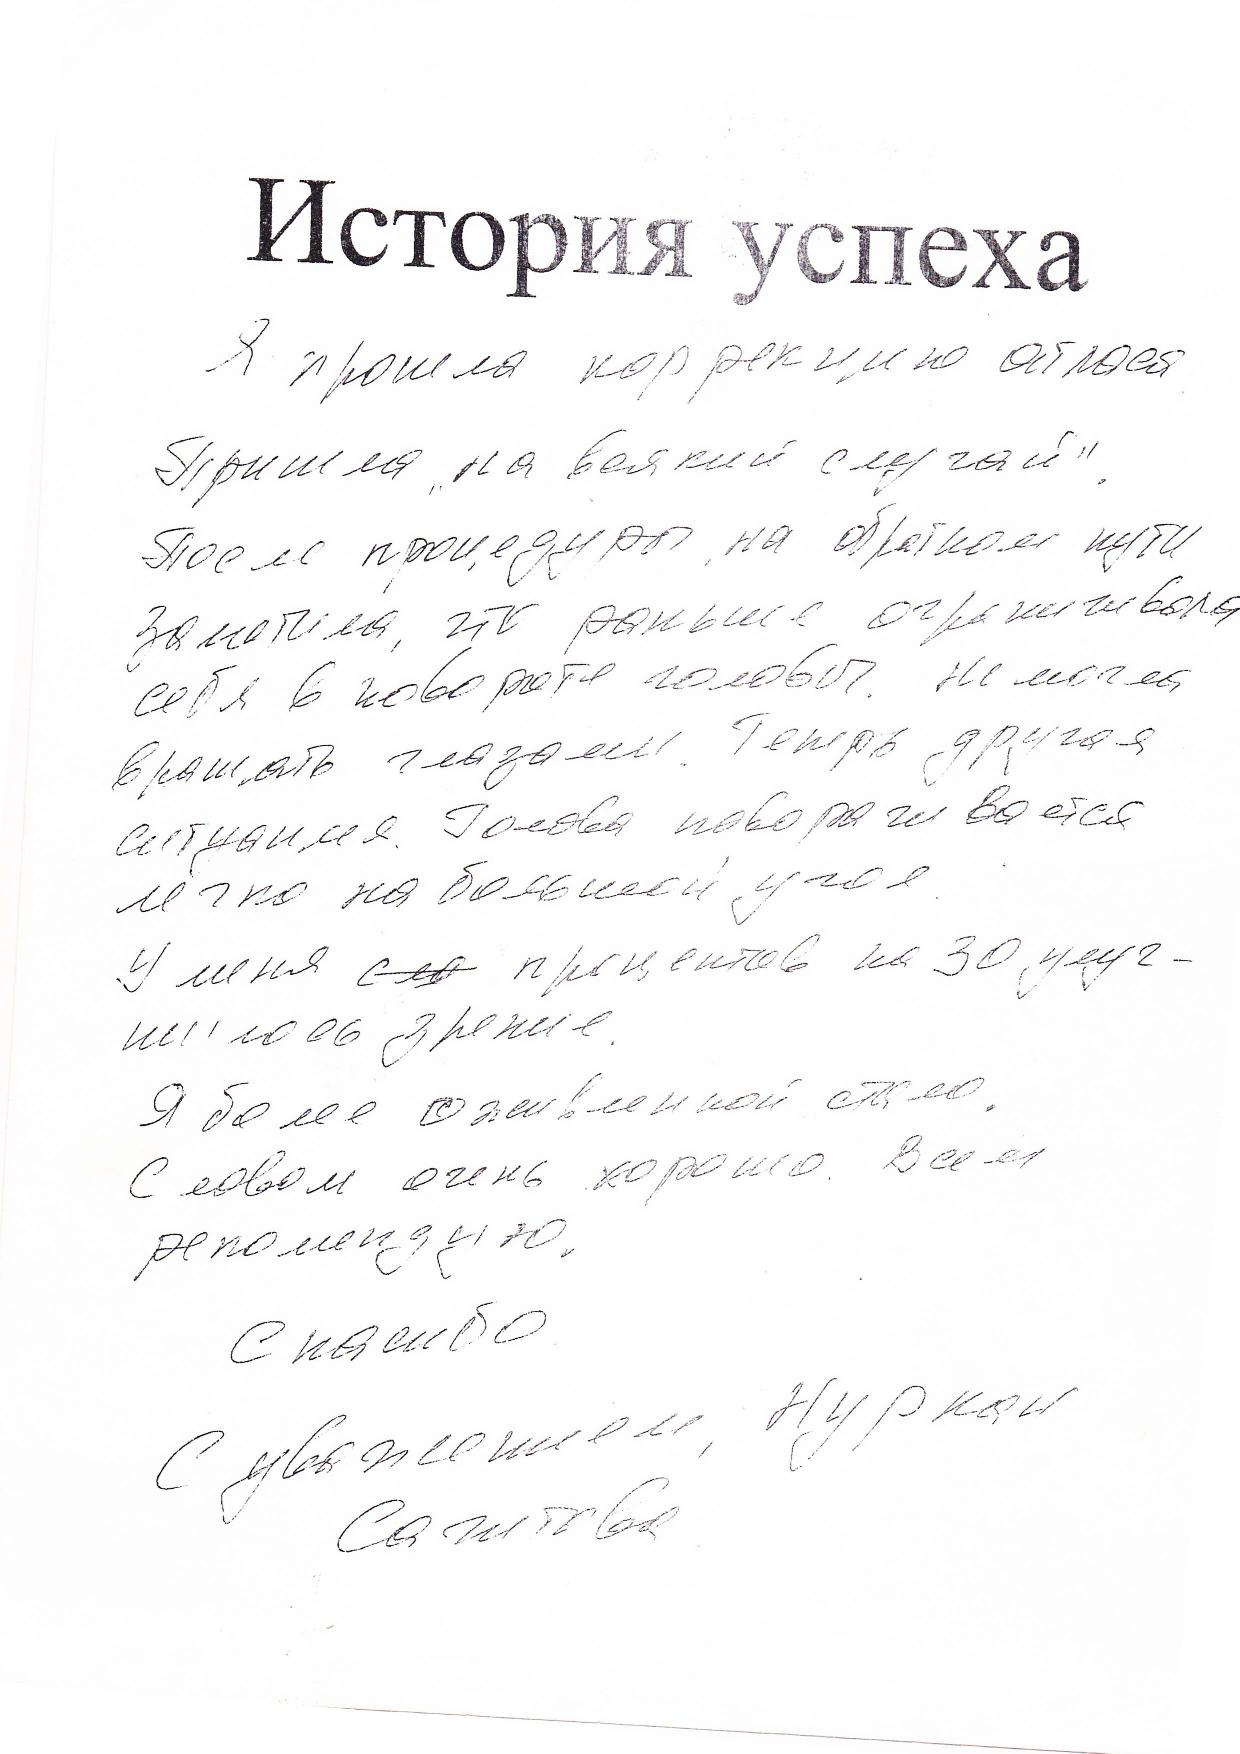 История успеха
Я прошла коррекцию атласа
Пришла „на всякий случай".
После процедуры, на обратном пути
заметила, что раньше ограничивала
себя в повороте головы. Не могла
вращать глазами. Теперь другая
ситуация. Голова поворачивается
легко на больший угол.
У меня процентов на 30 улуч-
шилось зрение.
Я более оживленной стала.
Словом очень хорошо. Всем
рекомендую.
Спасибо
С уважением, Нуркан